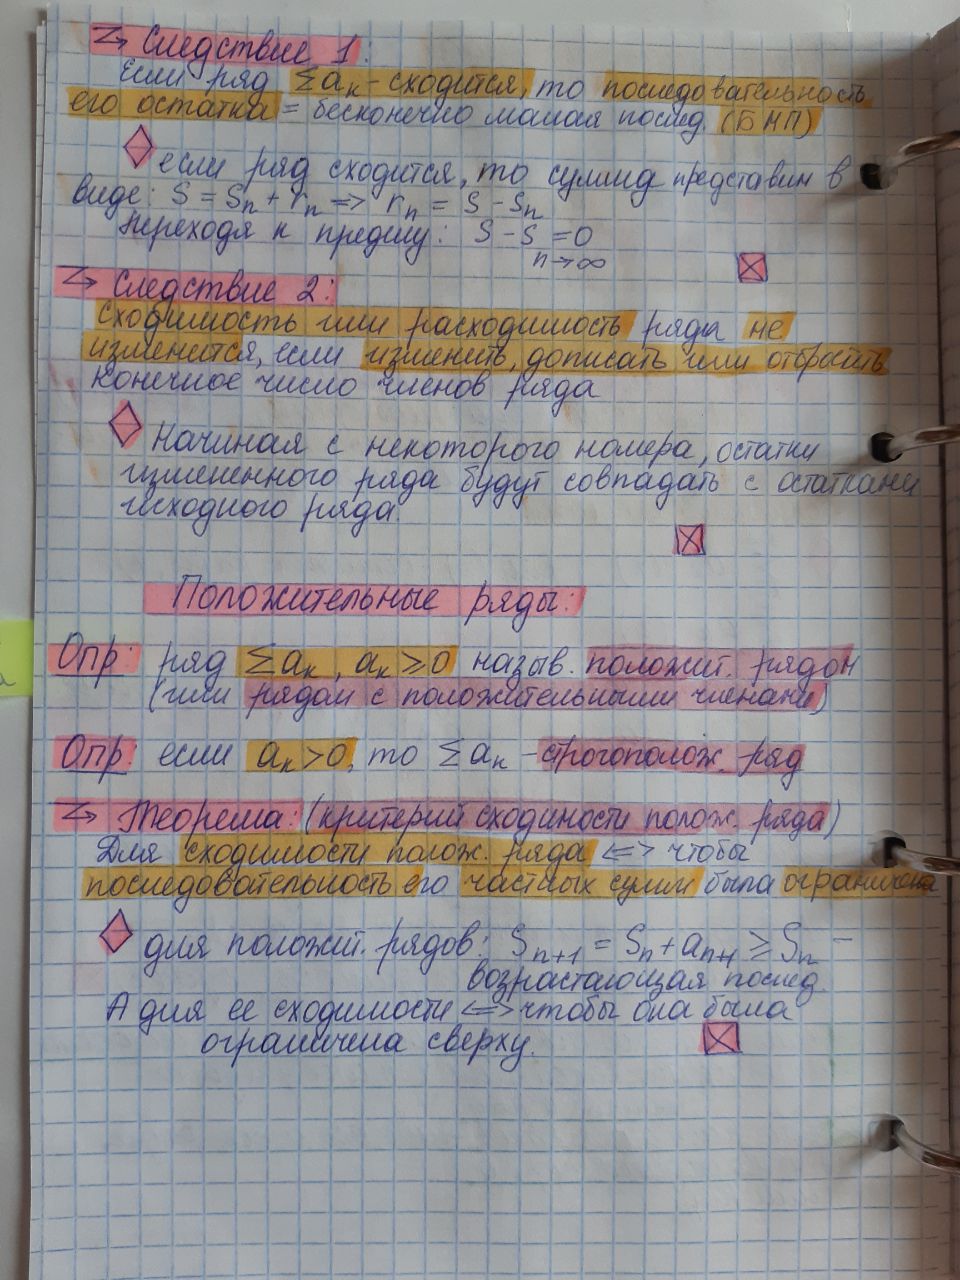 Следствие 1:
Если ряд Σaₖ - сходится, то последовательность
его остатка = бесконечно малая послед. (БМП)
если ряд сходится, то сумма представим в
виде: S = Sₙ + rₙ => rₙ = S - Sₙ
Переходя к пределу: S - S = 0
n→∞
Следствие 2:
сходимость или расходимость ряда не
изменится, если изменить, дописать или отбросить
конечное число членов ряда
Начиная с некоторого номера, остатки
измененного ряда будут совпадать с остатками
исходного ряда.
Положительные ряды:
Опр: ряд Σaₖ, aₖ ≥ 0 назыв. положит. рядом
(или рядом с положительными членами)
Опр: если aₖ > 0, то Σaₖ - строгополож. ряд
Теорема: (критерий сходимости полож. ряда)
Для сходимости полож. ряда <=> чтобы
последовательность его частных сумм была ограничена
для положит. рядов: Sₙ₊₁ = Sₙ + aₙ₊₁ ≥ Sₙ -
возрастающая послед.
А для ее сходимости <=> чтобы она была
ограничена сверху.